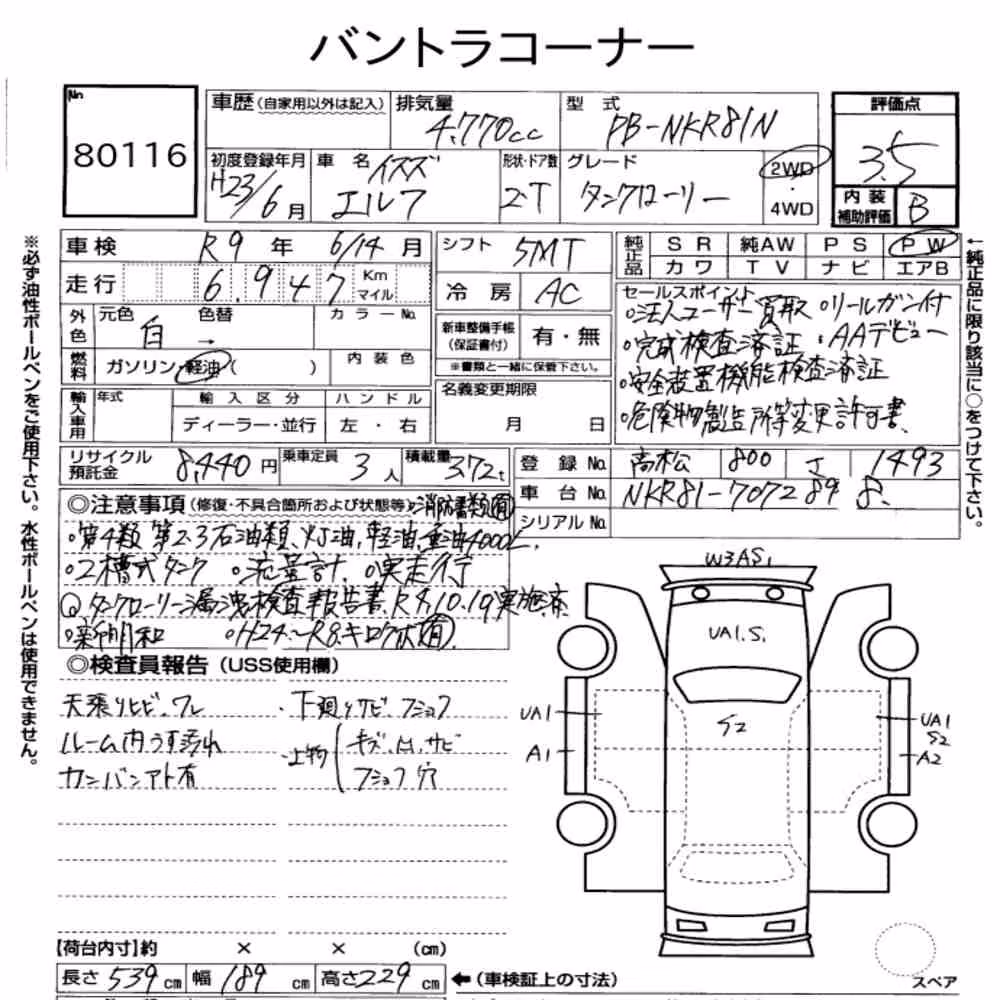 バントラコーナー
No
80116
車歴(自家用以外は記入)
排気量
4,770cc
型式
PB-NKR81N
評価点
3.5
内装
補助評価
B
初度登録年月
H23/6月
車名
イスズ
エルフ
形状・ドア数
2・T
グレード
タンクローリー
2WD
・
4WD
車検 R9年 6/14月
走行 6.947 Km マイル
外色
元色
白 →
色替
カラーNo.
燃料
ガソリン・軽油( )
内装色
輸入車用
年式
輸入区分
ハンドル
ディーラー・並行
左・右
シフト 5MT
冷房 AC
新車整備手帳
(保証書付)
有・無
※書類と一緒に保管下さい。
名義変更期限
月 日
純正品
SR 純AW PS PW
カワ TV ナビ エアB
セールスポイント
○法人ユーザー買取 ○リールガン付
○完成検査済証 ・AAデビュー
○安全装置機能検査済証
○危険物製造所等変更許可書
←純正品に限り該当に○をつけて下さい。
※必ず油性ボールペンをご使用下さい。水性ボールペンは使用できません。
リサイクル
預託金
8,440円
乗車定員
3人
積載量
3.72t
登録No. 高松 800 1493
車台No. NKR81-7072898
シリアルNo.
◎注意事項(修復・不具合箇所および状態等)
○第4類 第2.3石油類、灯油,軽油,重油4000L.
○2槽式タンク ○流量計. ○実走行
タンクローリー漏洩検査報告書 R4.10.19実施済
○H24~R8キロク
◎検査員報告(USS使用欄)
天張りヒビ・ワレ
・下廻りサビ・フショク
ルーム内うす汚れ
・上物
キズ.凹.サビ
カンバンアト有
フショク穴
W3AS1
UA1.S1
S2
UA1
A1
UA1
S2
A2
【荷台内寸】約 × × (cm)
長さ 539cm 幅 189cm 高さ 229cm
←(車検証上の寸法)
スペア